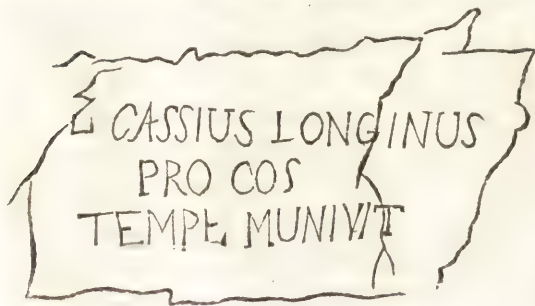 L CASSIUS LONGINUS
PRO COS
TEMPE MUNIVIT